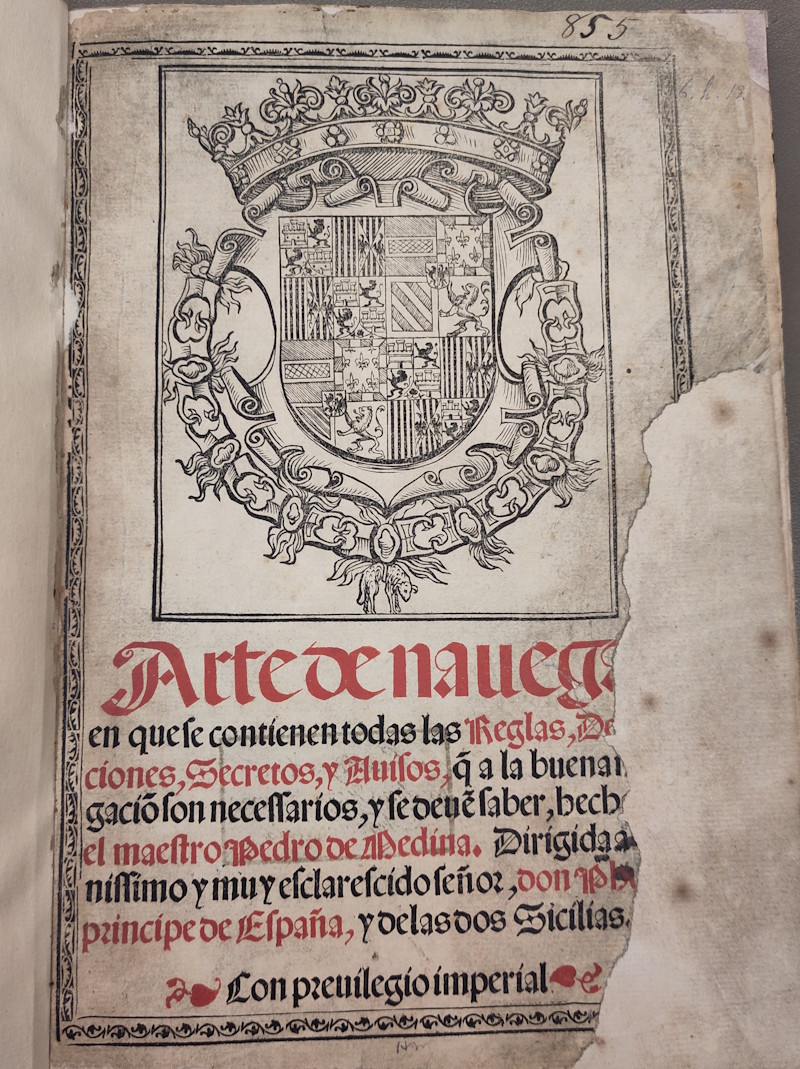 855
Arte de naueg
en que se contienen todas las Reglas, De
ciones, Secretos, y Auisos, q̃ a la buena
gaciõ son necessarios, y se deuẽ saber, hech
el maestro Pedro de Medina. Dirigida a
nissimo y muy esclarescido señor, don Ph
principe de España, y delas dos Sicilias.
Con preuilegio imperial